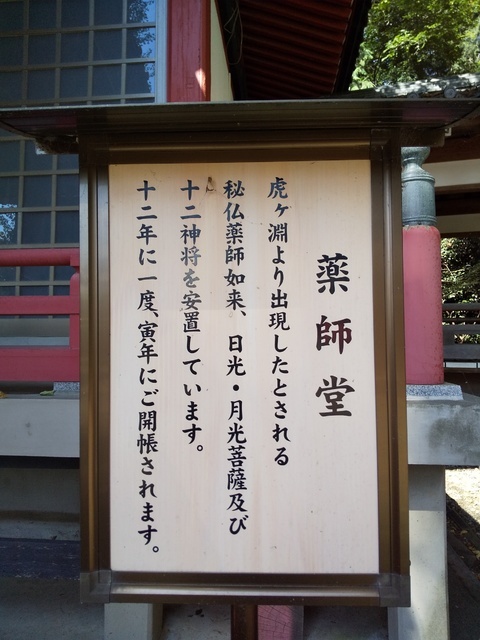 薬師堂
虎ヶ淵より出現したとされる
秘仏薬師如来、日光・月光菩薩及び
十二神将を安置しています。
十二年に一度、寅年にご開帳されます。